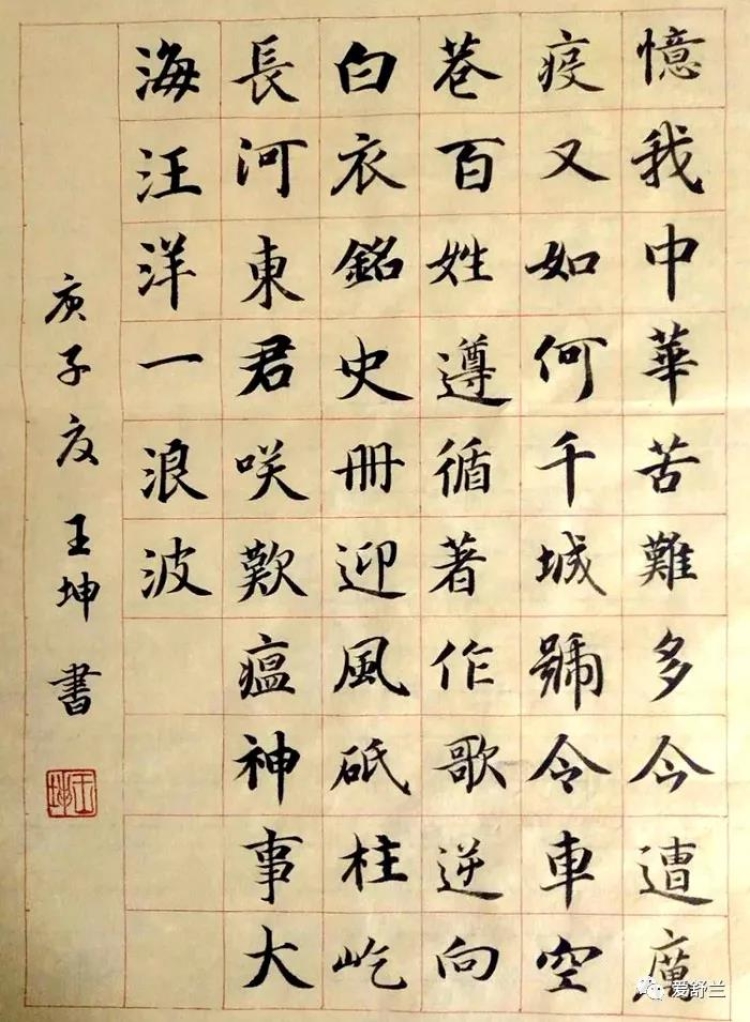 憶我中華苦難多今遭厲
疫又如何千城號令車空
巷百姓遵循著作歌逆向
白衣銘史冊迎風砥柱屹
長河東君咲歎瘟神事大
海汪洋一浪波
庚子 王坤書
王坤
爱舒兰